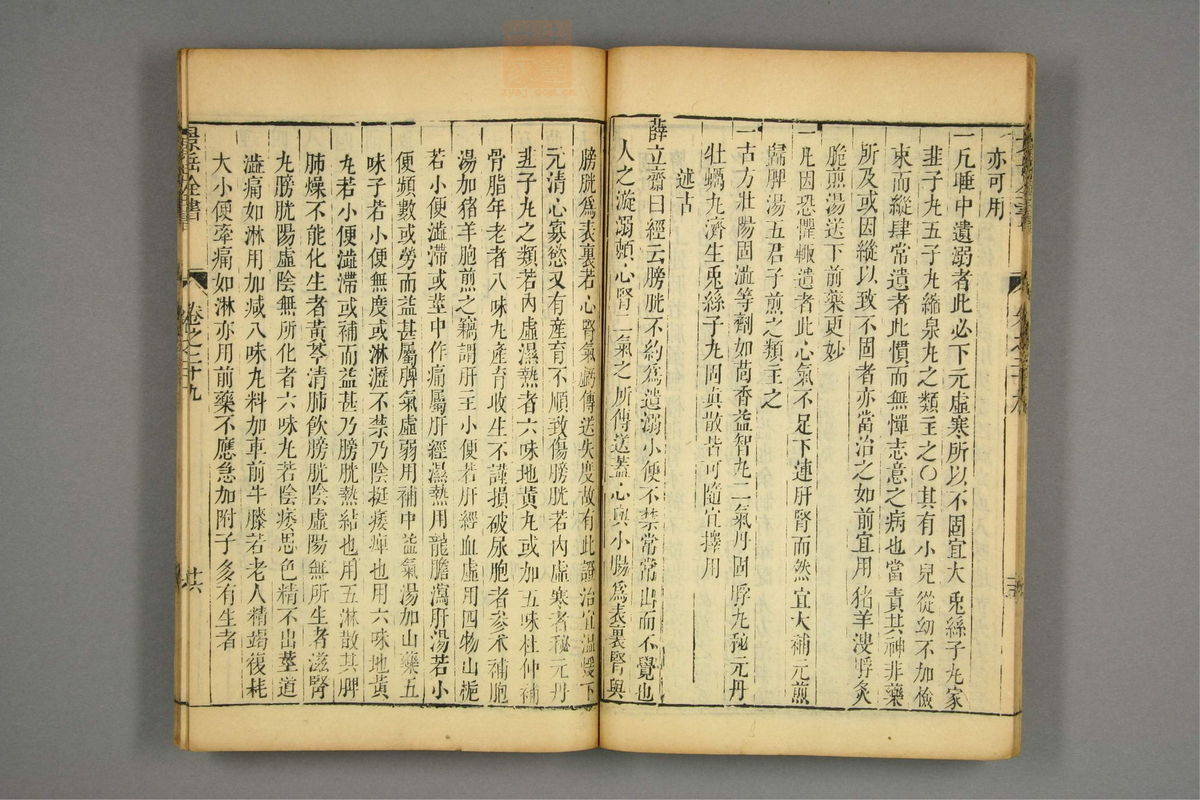 亦可用
一凡睡中遺溺者此必下元虛寒所以不固宜大兎絲子丸家
韭子丸五子丸縮泉丸之類主之○其有小兒從幼不加儉
束而縱肆常遺者此慣而無憚志意之病也當責其神非藥
所及或因縱以致不固者亦當治之如前宜用猪羊溲脬炙
脆煎湯送下前藥更妙
一凡因恐懼輙遺者此心氣不足下連肝腎而然宜大補元煎
歸脾湯五君子煎之類主之
一古方壯陽固澁等劑如茴香益智丸二氣丹固脬丸秘元丹
牡蠣丸濟生兎絲子丸固眞散皆可隨宜擇用
述古
薛立齋曰經云膀胱不約爲遺溺小便不禁常常出而不覺也
人之漩溺頼心腎二氣之所傳送蓋心與小腸爲表裏腎與
膀胱爲表裏若心腎氣虧傳送失度故有此證治宜溫煖下
元清心寡慾又有産育不順致傷膀胱若內虛寒者秘元丹
韭子丸之類若內虛濕熱者六味地黃丸或加五味杜仲補
骨脂年老者八味丸產育收生不謹損破尿胞者參朮補胞
湯加猪羊胞煎之竊謂肝主小便若肝經血虛用四物山梔
若小便澁滯或莖中作痛屬肝經濕熱用龍膽瀉肝湯若小
便頻數或勞而益甚屬脾氣虛弱用補中益氣湯加山藥五
味子若小便無度或淋瀝不禁乃陰挺痿痺也用六味地黃
丸若小便澁滯或補而益甚乃膀胱熱結也用五淋散其脾
肺燥不能化生者黃芩清肺飲膀胱陰虛陽無所生者滋腎
丸膀胱陽虛陰無所化者六味丸若陰痿思色精不出莖道
澁痛如淋用加減八味丸料加車前牛膝若老人精竭復耗
大小便牽痛如淋亦用前藥不應急加附子多有生者
景岳全書
卷之二十九
廿六